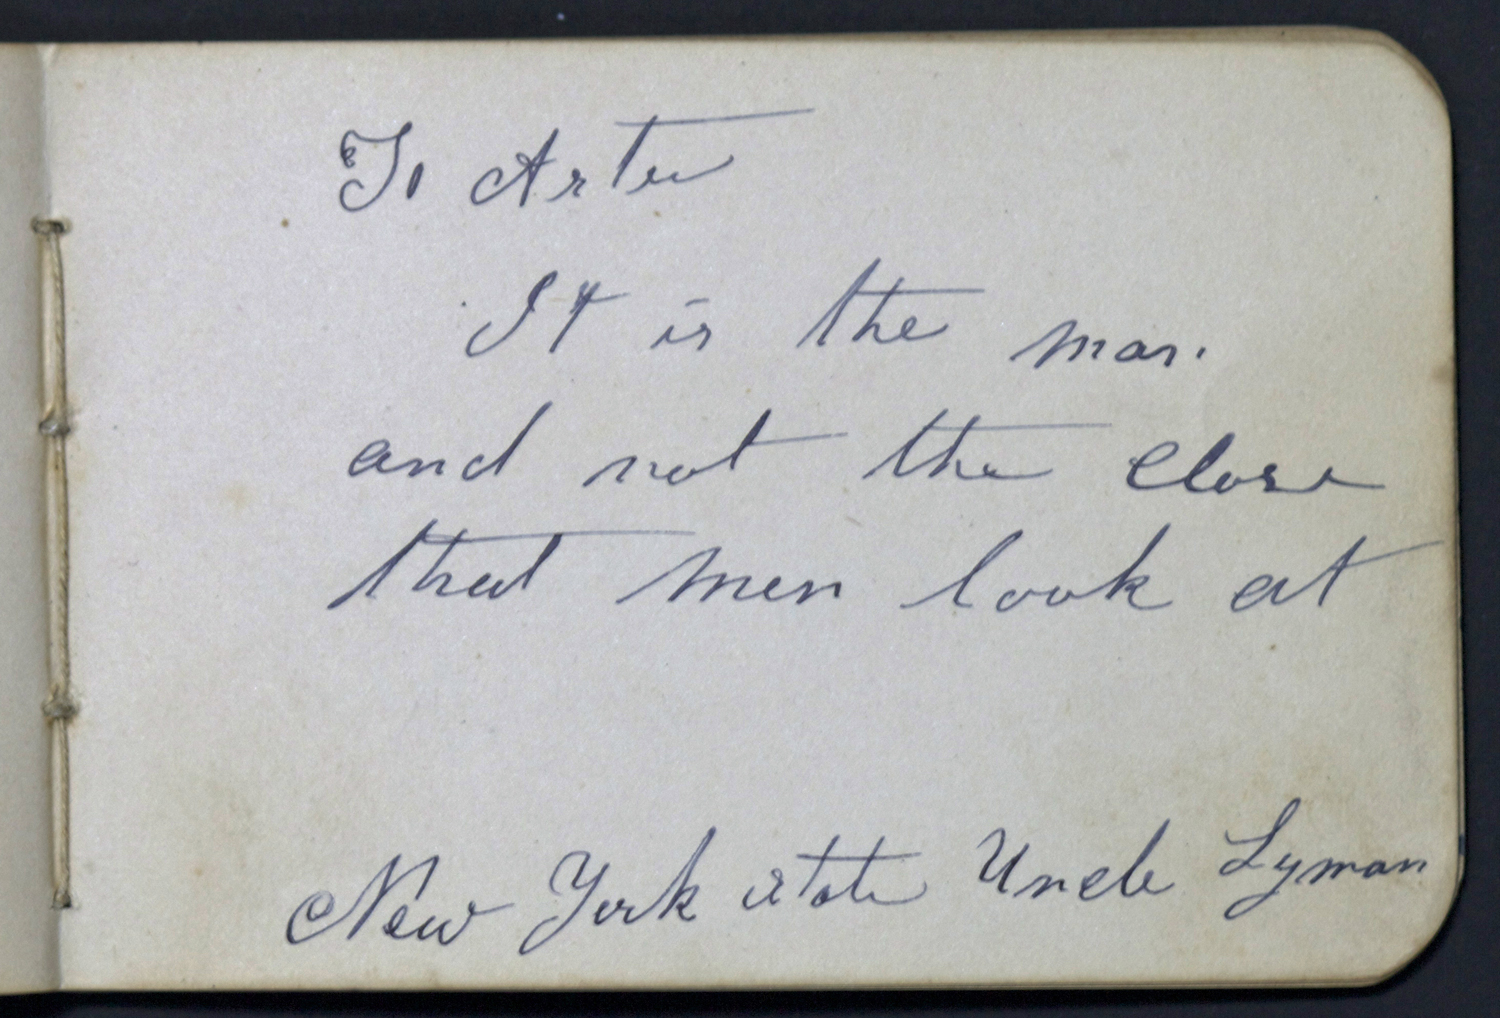 To Arter
It is the man
and not the close
that men look at
New York state Uncle Lyman